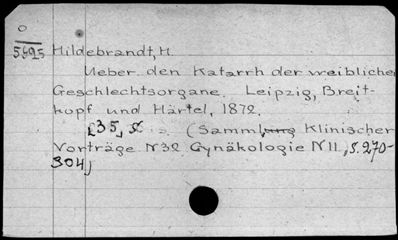 O
5695 Hildebrandt, H.
Ueber den Katarrh der weiblichen
Geschlechtsorgane. Leipzig, Breit-
kopf und Härtel, 1872.
35, (Sammlung Klinischer
Vorträge N32 Gynäkologie N11, S. 270-
304)